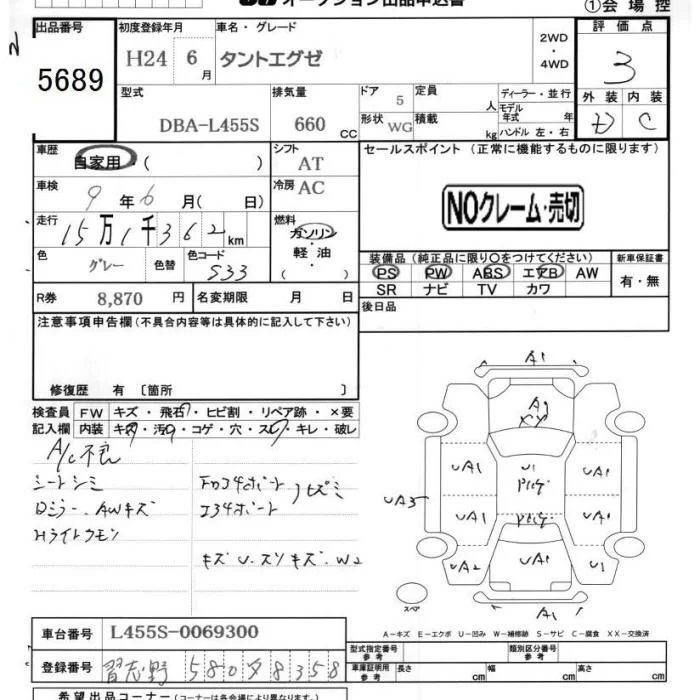 オークション出品申込書
①会場控
出品番号 初度登録年月 車名・グレード 2WD・4WD 評価点
5689 H24 6月 タントエグゼ 3
型式 排気量 ドア 定員 ディーラー・並行 外装 内装
DBA-L455S 660CC 5 人 モデル年式 年 C
形状 WG 積載 kg ハンドル 左・右
車歴 自家用・( ) シフト AT セールスポイント(正常に機能するものに限ります)
車検 9年6月( 日) 冷房 AC
NOクレーム・売切
走行 15万1千362km 燃料 ガソリン・軽油・( )
色 グレー 色替 色コード S33
装備品(純正品に限り○をつけてください) 新車保証書
PS PW ABS エアB AW 有・無
SR ナビ TV カワ
R券 8,870円 名変期限 月 日 後日品
注意事項申告欄(不具合内容等は具体的に記入して下さい)
修復歴 有〔箇所 〕
検査員記入欄 FW キズ・飛石・ヒビ割・リペア跡・×要
内装 キズ・汚れ・コゲ・穴・スレ・キレ・破レ
A/C不良
シートシミ
Dミラー、AWキズ
Hライトクモン
キズ U.スリキズ.W2
A1
UA1 U1 UA1
UA3
UA1 UA1
UA2 UA1 U1
スペア A1
A-キズ E-エクボ U-凹み W-補修跡 S-サビ C-腐食 XX-交換済
車台番号 L455S-0069300
登録番号 習志野 580 8358
型式指定番号 参考 類別区分番号 参考
車庫証明用 参考 長さ cm 幅 cm 高さ cm
希望出品コーナー(コーナーは各会場により異なります。)